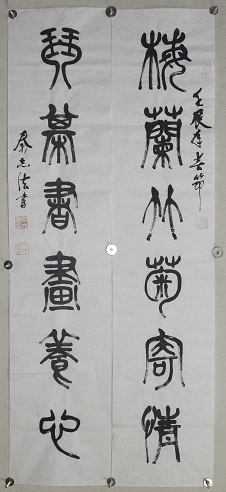 壬辰年春節
梅蘭竹菊寄情
琴棊書畫養心
志法書